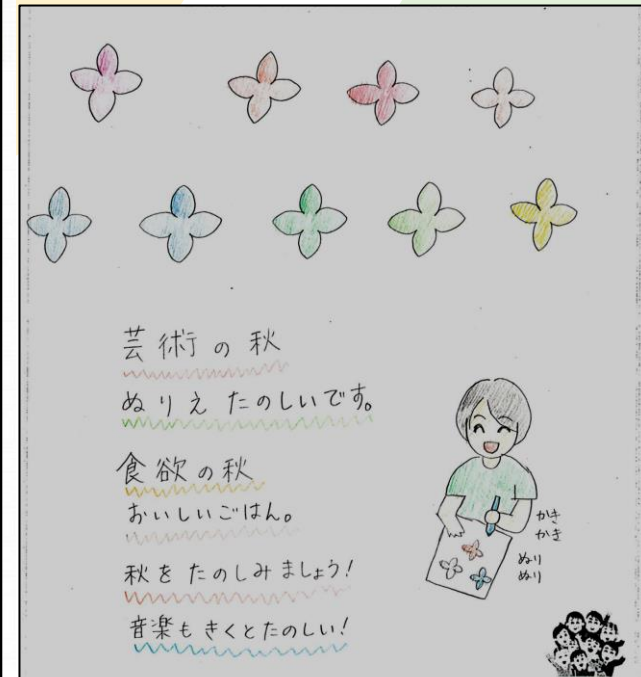 芸術の秋
ぬりえ たのしいです。
食欲の秋
おいしいごはん。
秋をたのしみましょう!
音楽もきくとたのしい!
かき
かき
ぬり
ぬり